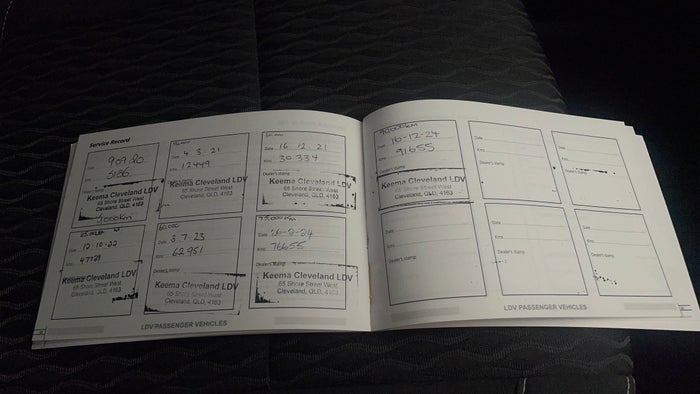 Service Record
Date 909.20
Kms 5186
Dealer's stamp
Keema Cleveland LDV
65 Shore Street West
Cleveland, QLD, 4163
5000km
Date 4.3.21
Kms 12449
Keema Cleveland LDV
65 Shore Street West
Cleveland, QLD, 4163
Date 16.12.21
Kms 30334
Dealer's stamp
Keema Cleveland LDV
65 Shore Street West
Cleveland, QLD, 4163
Date 12.10.22
Kms 47729
Keema Cleveland LDV
65 Shore Street West
Cleveland, QLD, 4163
60,000
Date 3.7.23
Kms 62951
Dealer's stamp
Keema Cleveland LDV
65 Shore Street West
Cleveland, QLD, 4163
75,000km
Date 26-2-24
Kms 76655
Dealer's stamp
Keema Cleveland LDV
65 Shore Street West
Cleveland, QLD, 4163
LDV PASSENGER VEHICLES
90,000km
Date 16-12-24
Kms 91655
Dealer's stamp
Keema Cleveland LDV
65 Shore Street West
Cleveland, QLD, 4163
Date
Kms
Dealer's stamp
Date
Kms
Dealer's stamp
Date
Kms
Dealer's stamp
Date
Kms
Dealer's stamp
Date
Kms
Dealer's stamp
LDV PASSENGER VEHICLES